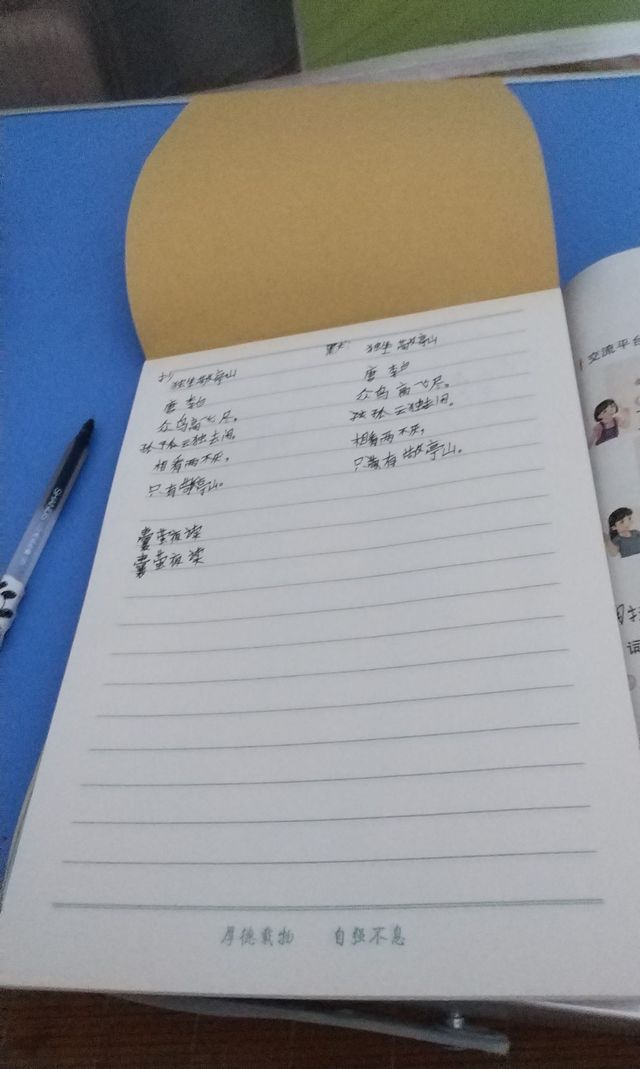 抄 独坐敬亭山
唐 李白
众鸟高飞尽，
孤云独去闲。
相看两不厌，
只有敬亭山。
囊萤夜读
囊萤夜读
默 独坐敬亭山
唐 李白
众鸟高飞尽，
孤云独去闲。
相看两不厌，
只有敬亭山。
厚德载物 自强不息
交流平台
词